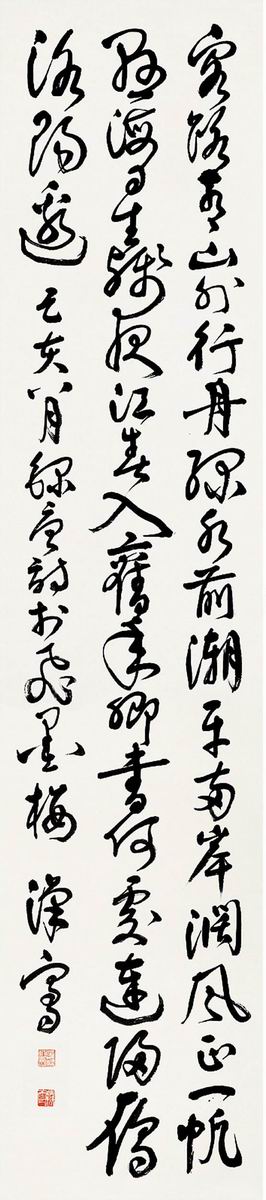 客路青山外行舟綠水前潮平兩岸闊風正一帆
懸海日生殘夜江春入舊年鄉書何處達歸雁
洛陽邊 己亥八月錄唐詩於飛墨梅